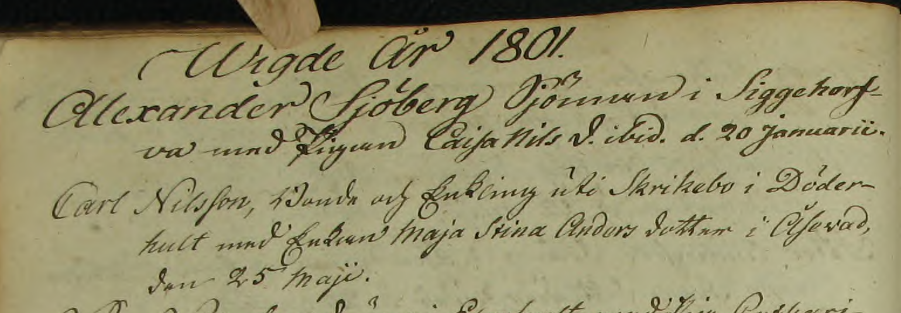 Wigde År 1801.
Alexander Sjöberg Sjöman i Siggehorf-
va med Pigan Caisa Nils D. ibid. d. 20 Januarii.
Carl Nilsson, Bonde och Enkling uti Skrikebo i Döder-
hult med Enkan Maja Stina Anders dotter i Åsevad,
den 25 Maji.